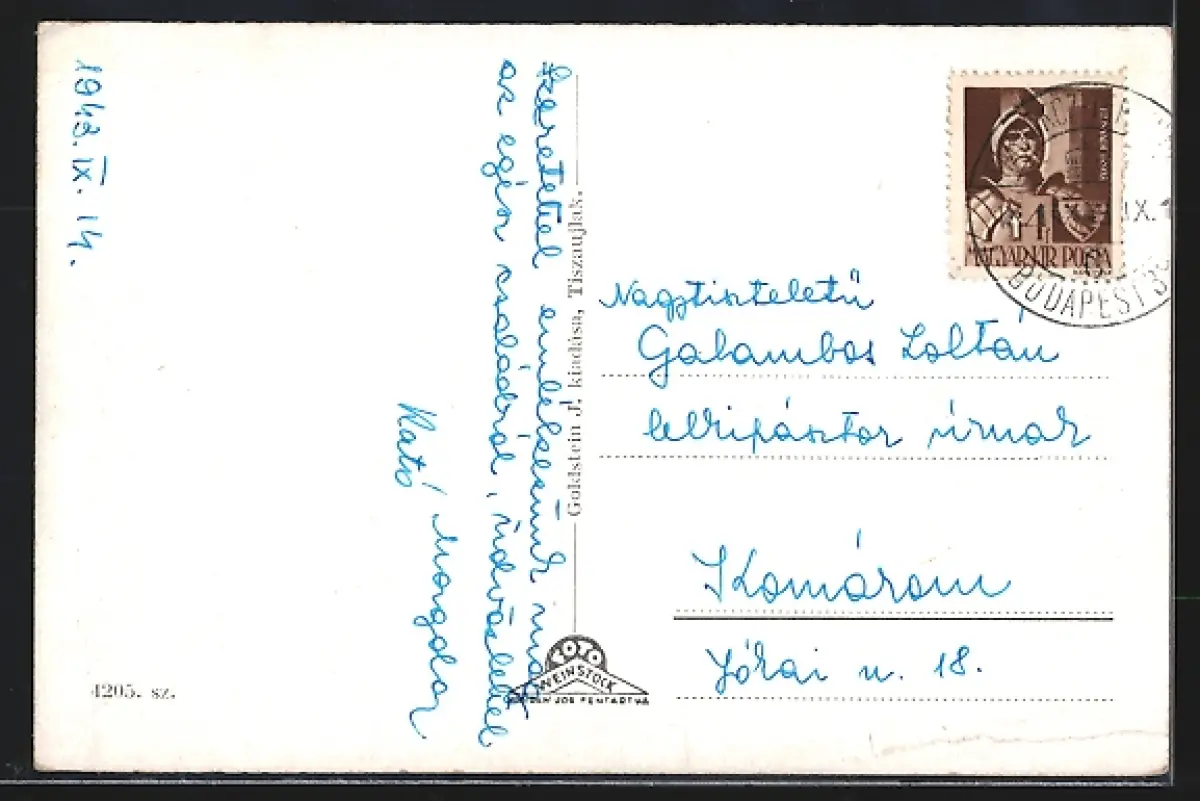 1943. IX. 14.
Szeretettel emlékezünk meg
az egész családról, üdvözlettel
Kató
4205. sz.
Goldstein J. kiadása, Tiszaujlak.
FOTO
WEINSTOCK
JOG FENTARTVA
MAGYAR KIR POSTA
IX.
BUDAPEST
Nagytiszteletű
Galambos Zoltán
lelkipásztor úrnak
Komárom
Jókai u. 18.